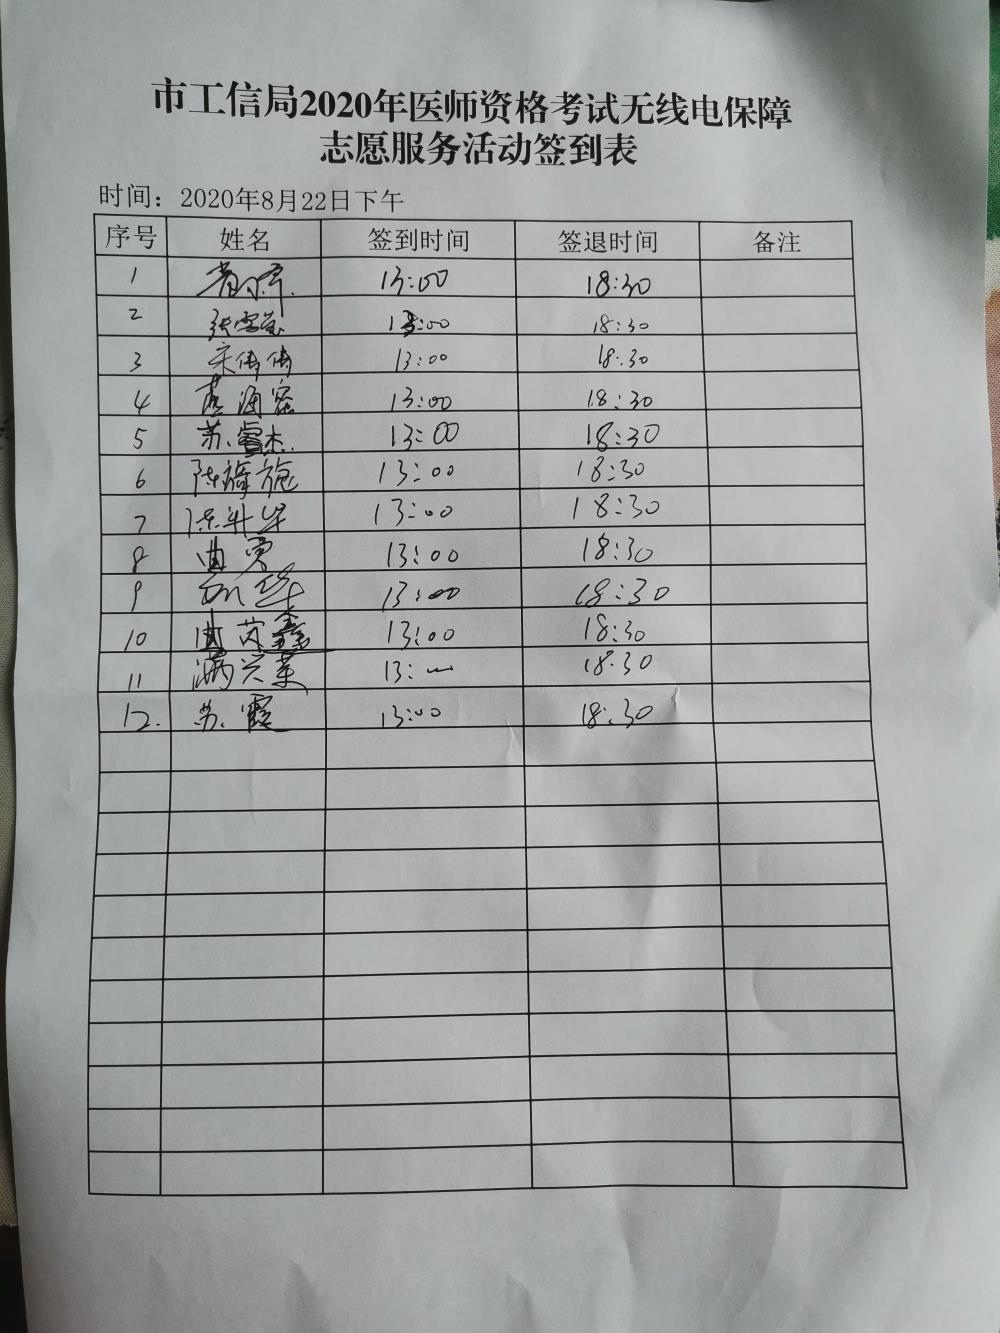 市工信局2020年医师资格考试无线电保障
志愿服务活动签到表
时间：2020年8月22日下午
序号 姓名 签到时间 签退时间 备注
1 13:00 18:30
2 张雪莹 13:00 18:30
3 宋倩倩 13:00 18:30
4 13:00 18:30
5 苏睿杰 13:00 18:30
6 13:00 18:30
7 13:00 18:30
8 曲 13:00 18:30
9 13:00 18:30
10 曲芮鑫 13:00 18:30
11 满兴莱 13: 18:30
12. 苏霞 13:00 18:30